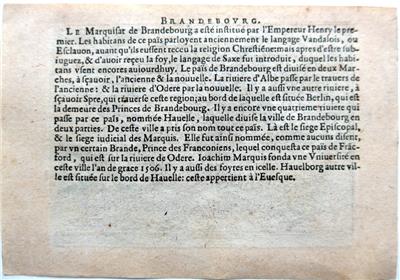 BRANDEBOVRG.
LE Marquisat de Brandebourg a esté institué par l'Empereur Henry le pre-
mier. Les habitans de ce païs parloyent anciennement le langage Vandalois, ou
Esclauon, auant qu'ils eussent receu la religion Chrestiẽne: mais apres d'estre sub-
iuguez, & d'auoir reçeu la foy, le langage de Saxe fut introduit, duquel les habi-
tans vsent encores auiourdhuy. Le païs de Brandebourg est diuisé en deux Mar-
ches, sçauoir, l'ancienne & la nouuelle. La riuiere d'Albe passe par le trauers de
l'ancienne: & la riuiere d'Odere par la nouuelle. Il y a aussi vne autre riuiere, à
sçauoir Spre, qui trauerse ceste region; au bord de laquelle est située Berlin, qui est
la demeure des Princes de Brandebourg. Il y a encore vne quatrieme riuiere qui
passe par ce païs, nommée Hauelle, laquelle diuise la ville de Brandebourg en
deux parties. De ceste ville a pris son nom tout ce païs. Là est le siege Episcopal,
& le siege iudicial des Marquis. Elle fut ainsi nommée, comme aucuns disent,
par vn certain Brande, Prince des Franconiens, lequel conquesta ce païs de Frãc-
ford, qui est sur la riuiere de Odere. Ioachim Marquis fonda vne Vniuersité en
ceste ville l'an de grace 1506. Il y a aussi des foyres en icelle. Hauelborg autre vil-
le est située sur le bord de Hauelle: ceste appertient à l'Euesque.